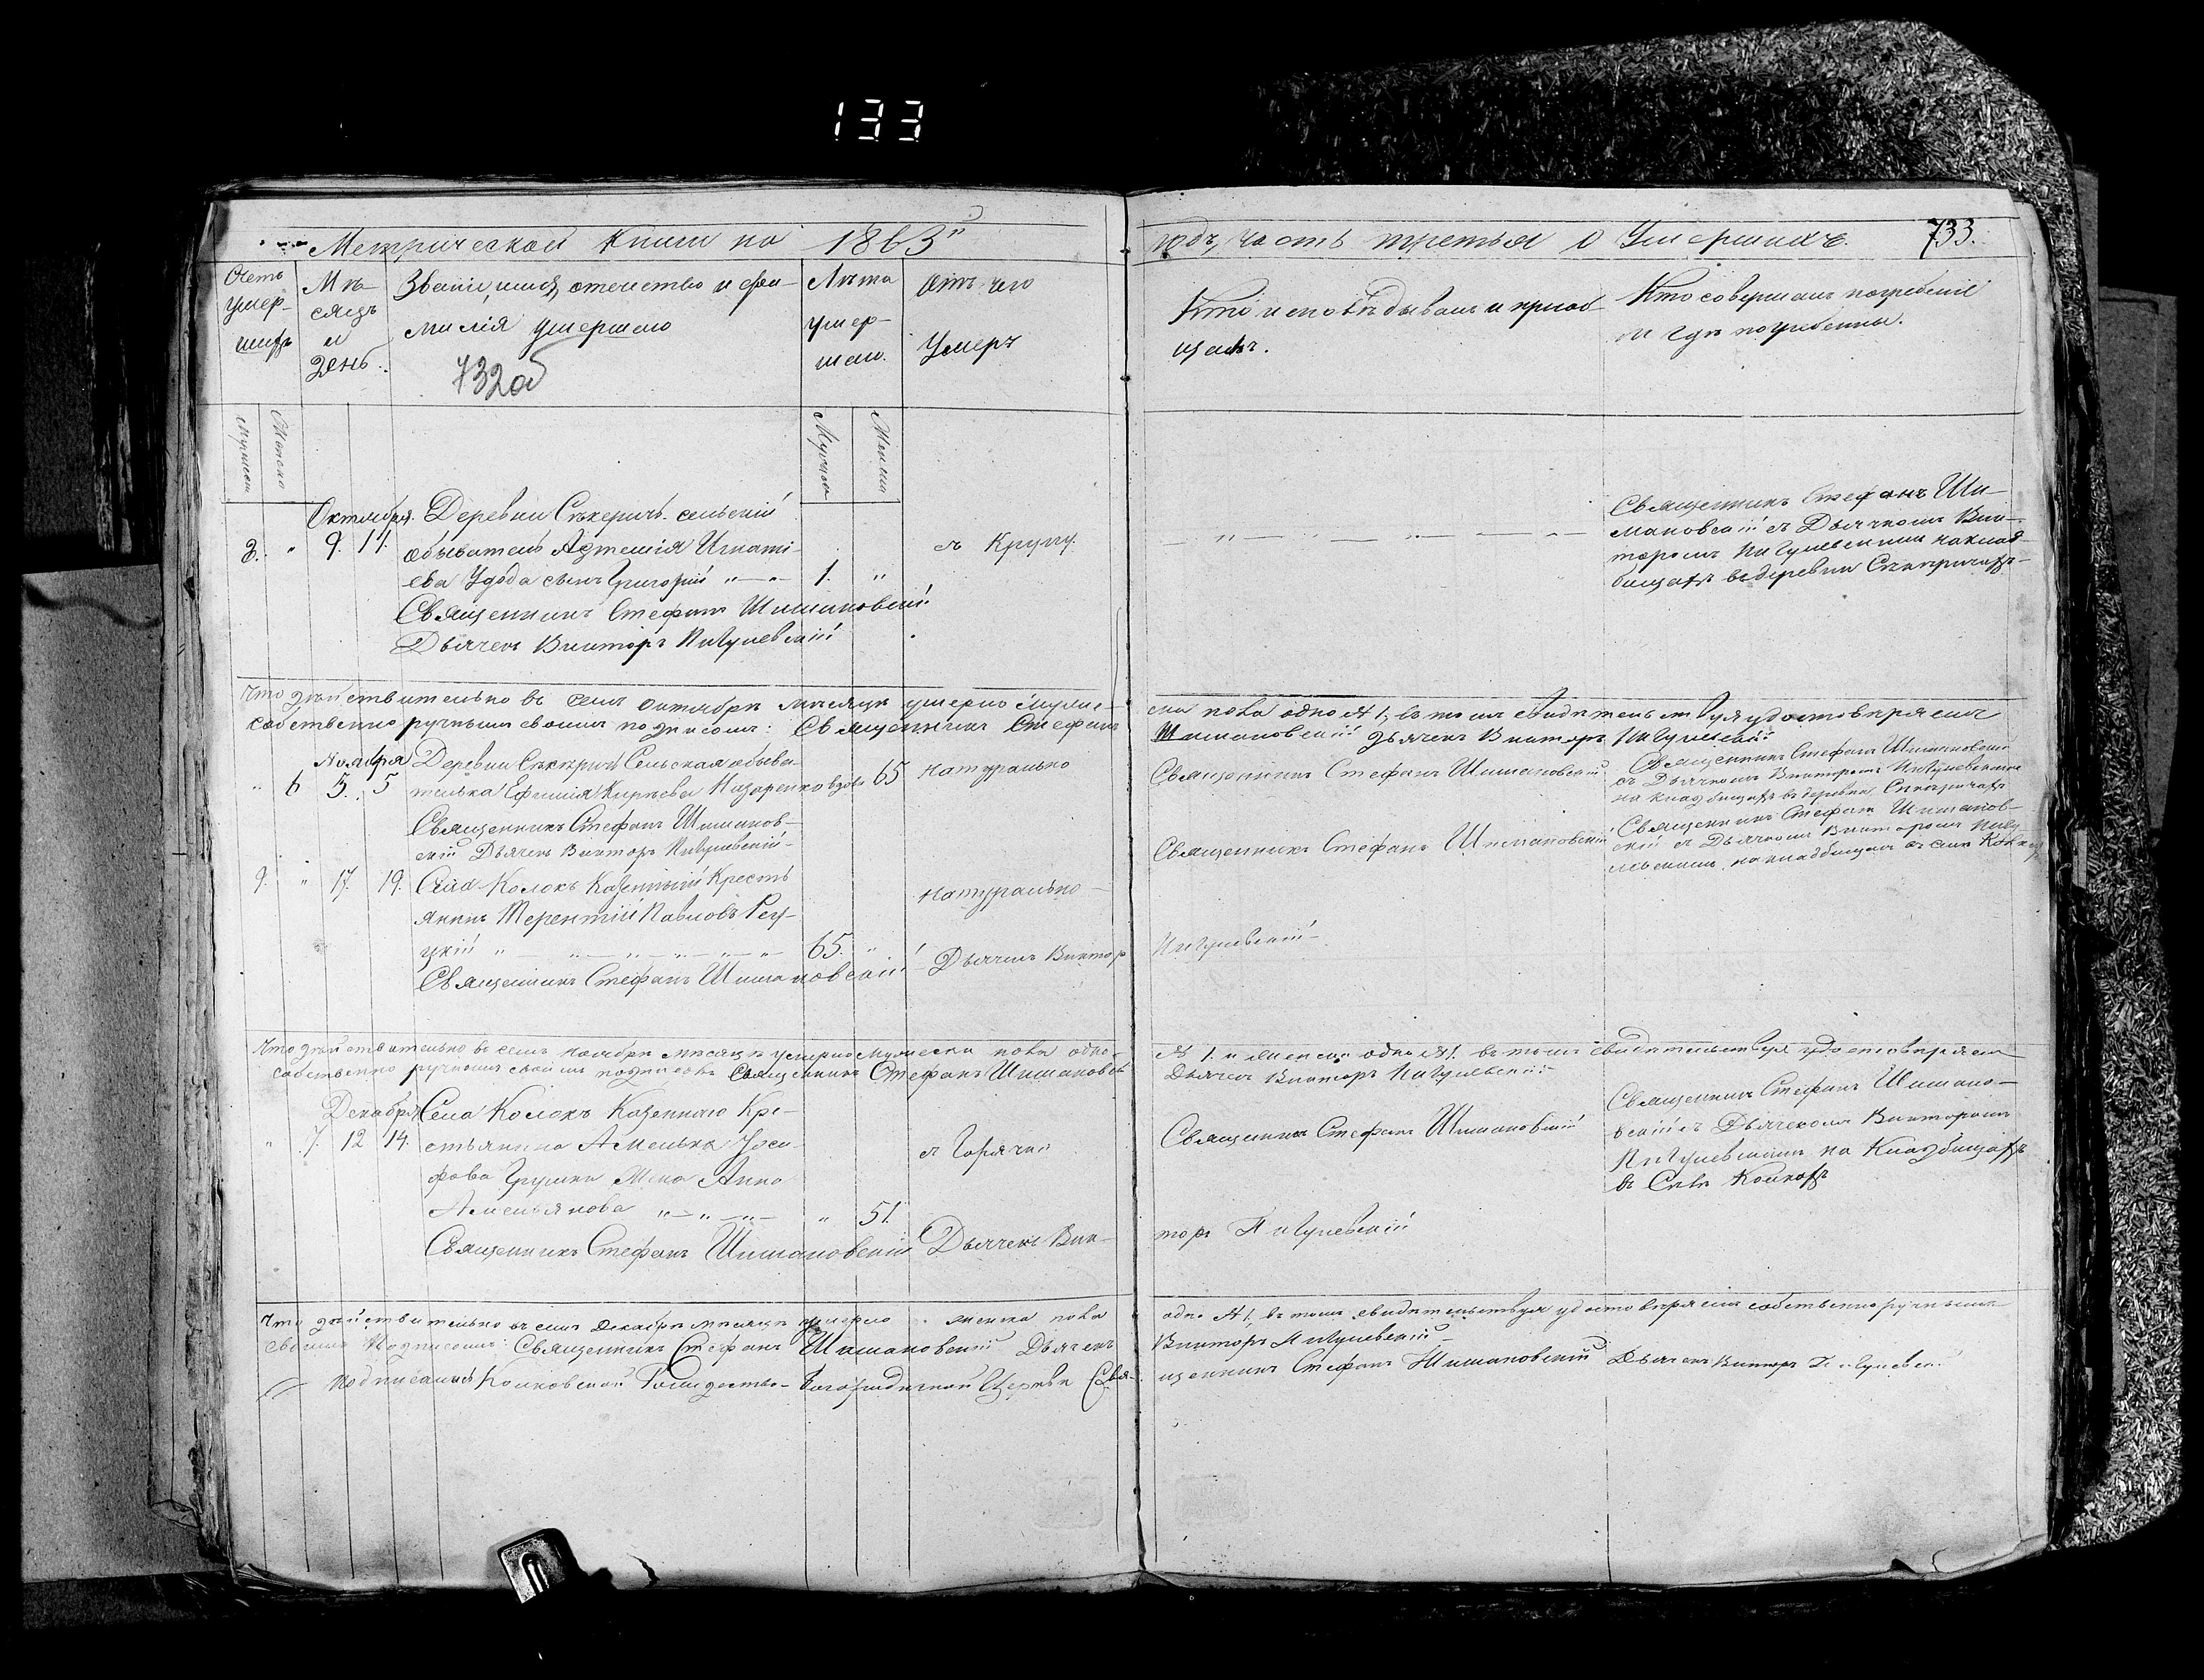 133
Метрической книги на 1863й
годъ, часть третья о Умершихъ. 733.
Счетъ умер-
шихъ
Мѣ-
сяцъ
и
день.
Званіе, имя, отечество и фа-
милія умершаго
732об
Лѣта
умер-
шаго.
Отъ чего
Умеръ
Кто исповѣдывалъ и приоб-
щалъ.
Кто совершалъ погребеніе
и гдѣ погребенны.
Октября. Деревни Сѣкеричъ сельскій
8. " 9. 11. обывателя Игнаті-
ева Удода сынъ Григорій " — " 1. " съ Крупу.
Священникъ Стефанъ Шимановскій
Дьячекъ Викторъ Пигулевскій
Священникъ Стефанъ Ши-
мановскій съ Дьячкомъ Вик-
торомъ Пигулевскимъ на клад-
бищахъ въ деревни Секиричахъ
Что дѣйствительно въ семъ октябрѣ мѣсяцѣ умерло мужес-
ска пола одно № 1, въ томъ свидѣтельствуя удостовѣряемъ
собственно ручнымъ своимъ подписомъ: Священникъ Стефанъ
Шимановскій дьячекъ Викторъ Пигулевскій
Ноября Деревни Сѣкеричъ Сельская обыва-
" 6 5. 5 телька Ефимія Назаренкова вдова 65 натурально
Священникъ Стефанъ Шиманов-
скій Дьячекъ Викторъ Пигулевскій
Священникъ Стефанъ Шимановскій
Священникъ Стефанъ Шимановскій
съ Дьячкомъ Викторомъ Пигулевскимъ
на кладбищахъ въ деревни Секиричахъ
9. " 17. 19. Села Колокъ Казенный Кресть-
янинъ Терентій Павловъ
" — " — " — " 65. " натурально
Священникъ Стефанъ Шимановскій Дьячекъ Виктор
Пигулевскій
Священникъ Стефанъ Шимановскій
Священникъ Стефанъ Шиманов-
скій съ Дьячкомъ Викторомъ Пигу-
левскимъ на кладбищахъ въ селѣ
Что дѣйствительно въ семъ ноябрѣ мѣсяцѣ умерло мужеска пола одно
№ 1. и женска одно № 1. въ томъ свидѣтельствуя удостовѣряемъ
собственно ручнымъ своимъ подписомъ Священникъ Стефанъ Шимановск
Дьячекъ Викторъ Пигулевскій
Декабря Села Колокъ Казеннаго Кре-
" 7. 12 14. стьянина Амелька Іоси-
фова Жена Анна
Амельянова " — " — " 51. съ Горячки
Священникъ Стефанъ Шимановскій Дьячекъ Вик-
торъ Пигулевскій
Священникъ Стефанъ Шимановскій
Священникъ Стефанъ Шимано-
вскій съ Дьячекомъ Викторомъ
Пигулевскимъ на Кладбищахъ
въ Селѣ Колкахъ
Что дѣйствительно въ семъ Декабрѣ мѣсяцѣ умерло женска пола
одно № 1. въ томъ свидѣтельствуя удостовѣряемъ собственно ручнымъ
своимъ подписомъ: Священникъ Стефанъ Шимановскій Дьячекъ
Викторъ Пигулевскій
Подписались Колковской Рождество-Богородичной Церкви Свя-
щенникъ Стефанъ Шимановскій Дьячекъ Викторъ Пигулевскій